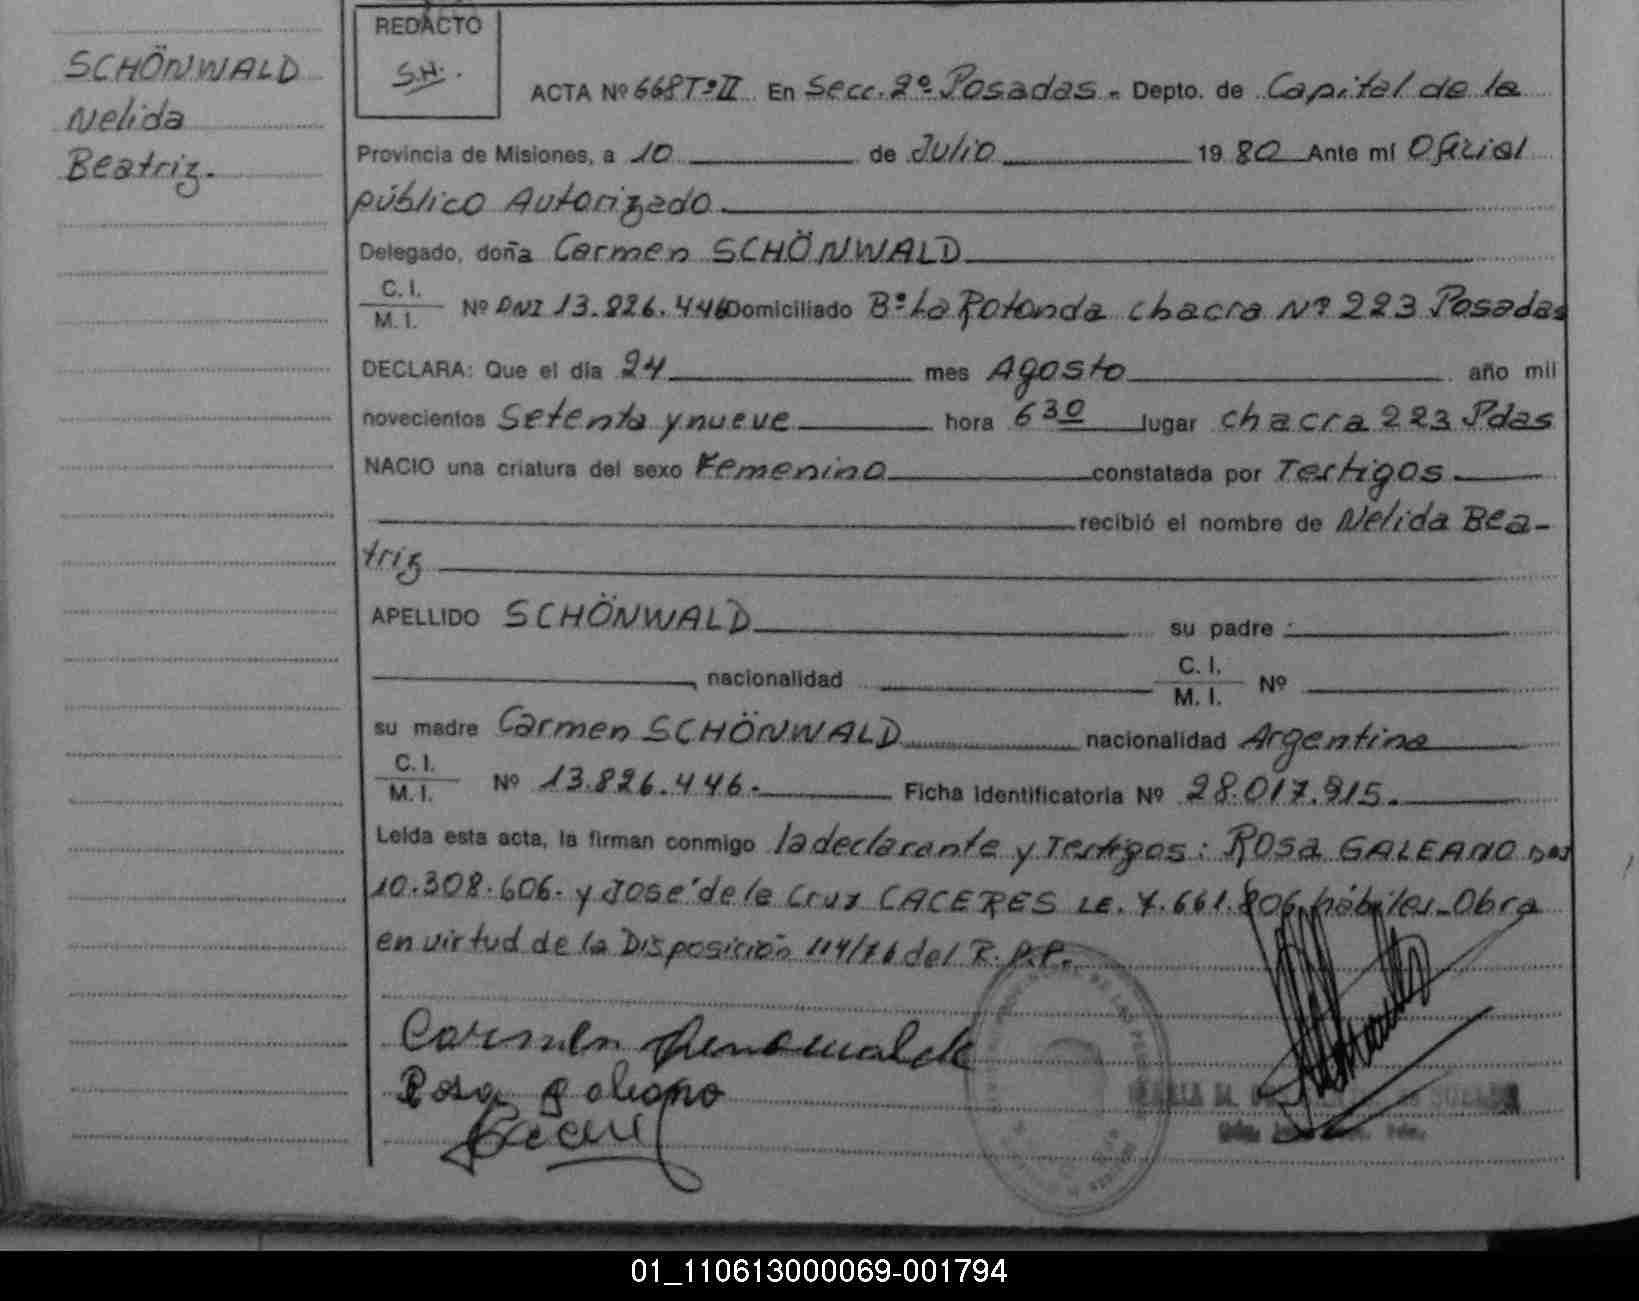 SCHÖNWALD
Nelida
Beatriz.
REDACTO
S.H.
ACTA Nº 668 Tº II En Secc. 2º Posadas. Depto. de Capital de la
Provincia de Misiones, a 10 de Julio 1980 Ante mí Oficial
público Autorizado
Delegado, doña Carmen SCHÖNWALD
C. I.
M. I. Nº DNI 13.826.446 Domiciliado Bº La Rotonda chacra Nº 223 Posadas
DECLARA: Que el día 24 mes Agosto año mil
novecientos Setenta y nueve hora 6 30 lugar chacra 223 Pdas
NACIO una criatura del sexo Femenino constatada por Testigos
recibió el nombre de Nelida Bea-
triz
APELLIDO SCHÖNWALD su padre :
, nacionalidad C. I.
M. I. Nº
su madre Carmen SCHÖNWALD nacionalidad Argentina
C. I.
M. I. Nº 13.826.446. Ficha Identificatoria Nº 28.017.915.
Leída esta acta, la firman conmigo la declarante y Testigos: ROSA GALEANO DNI
10.308.606. y José de la Cruz CACERES LE. 7.661.806 hábiles. Obra
en virtud de la Disposición 114/76 del R.P.P.
Carmen
Rosa galeano
01_110613000069-001794